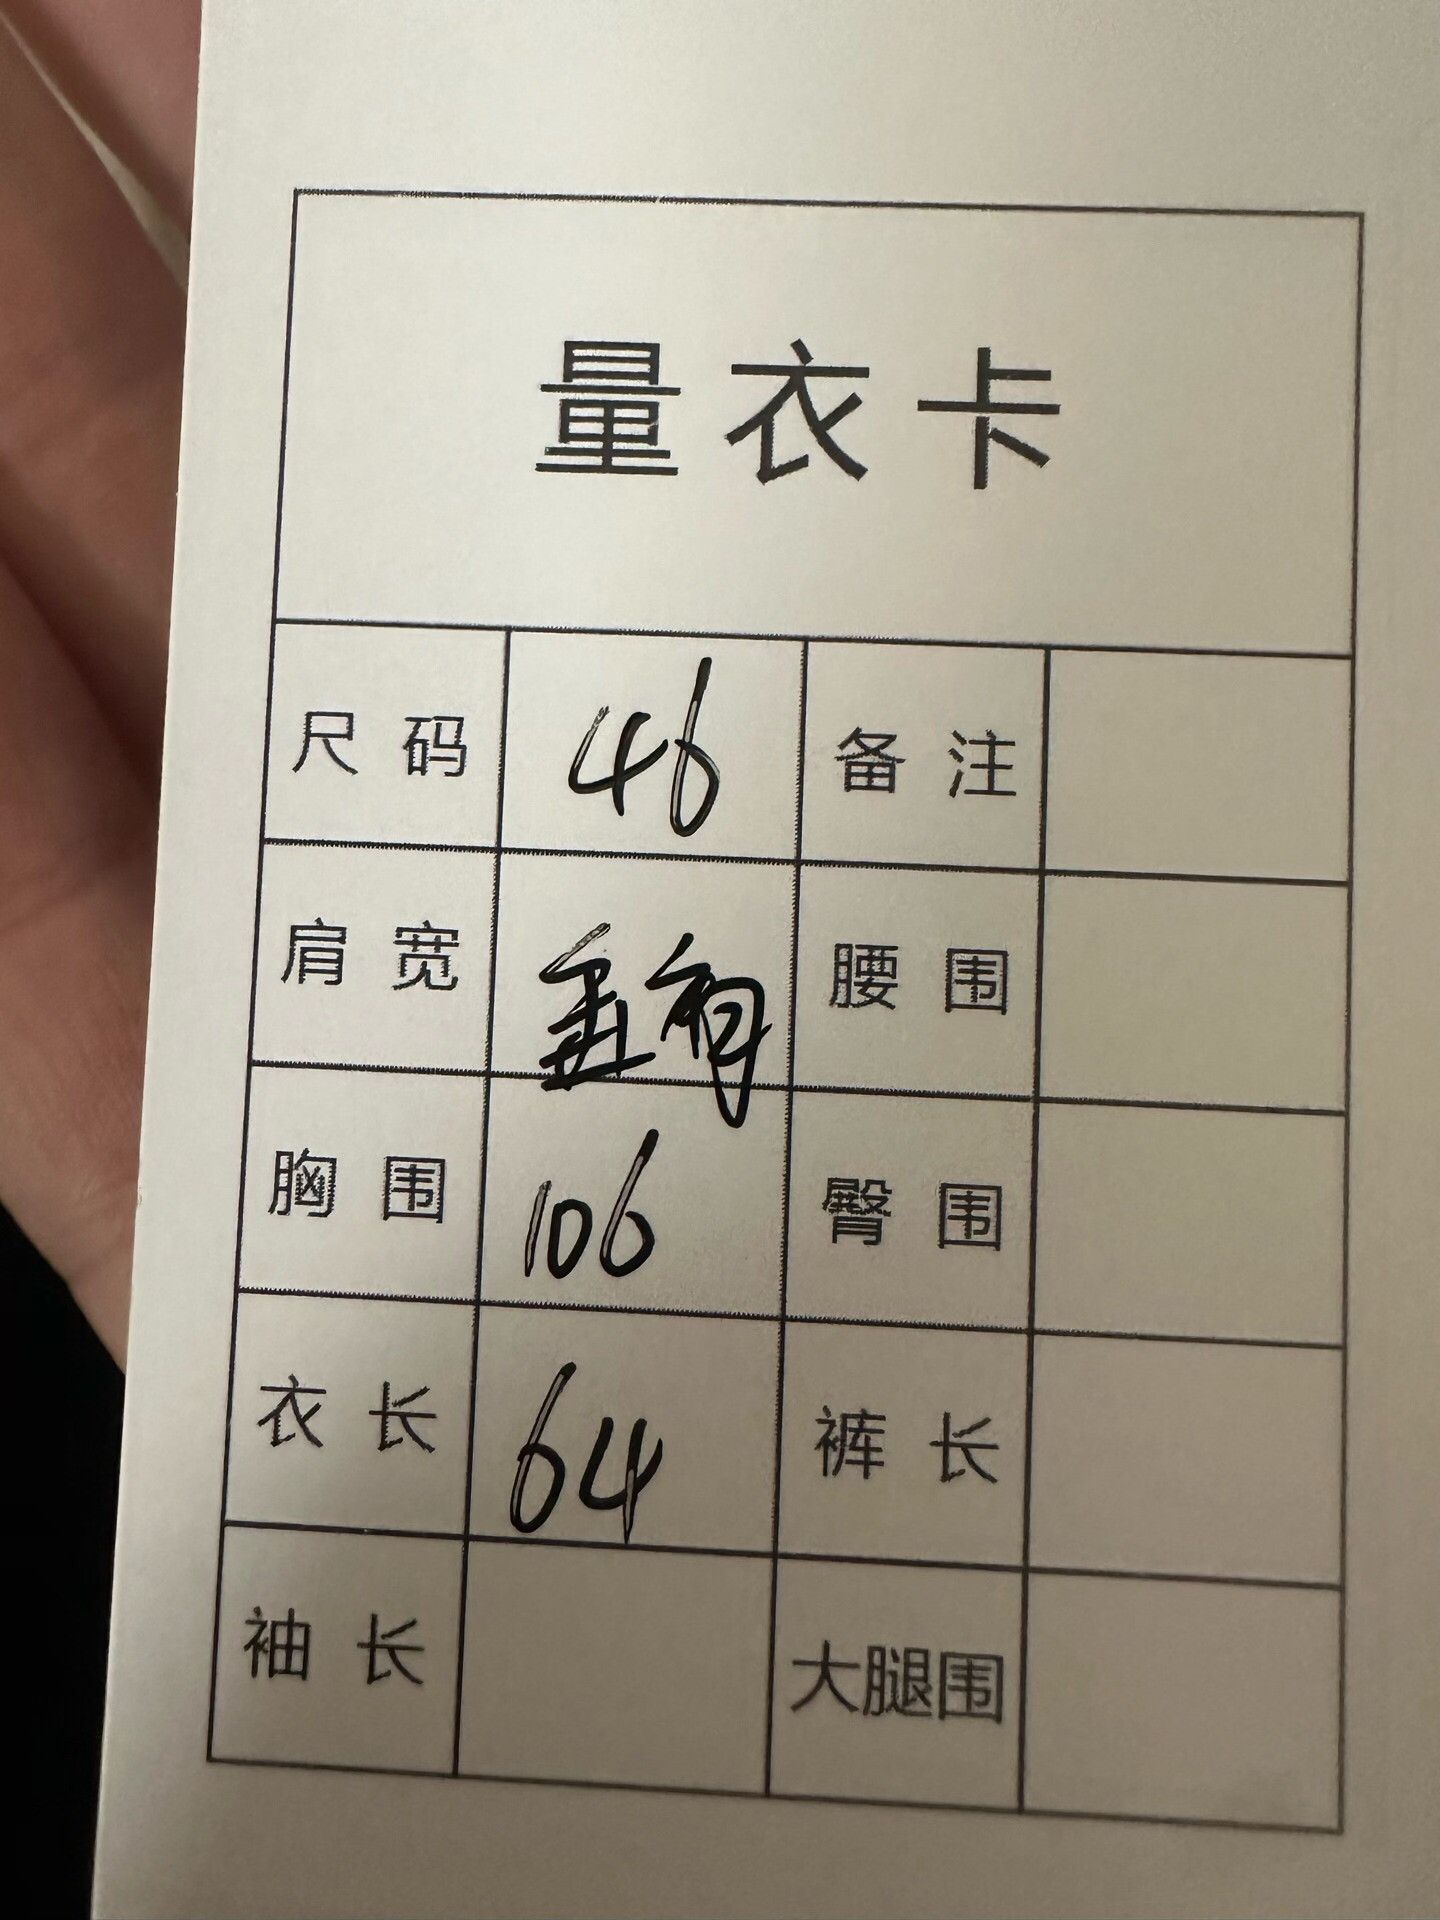 量衣卡
尺码 46 备注
肩宽 腰围
胸围 106 臀围
衣长 64 裤长
袖长 大腿围